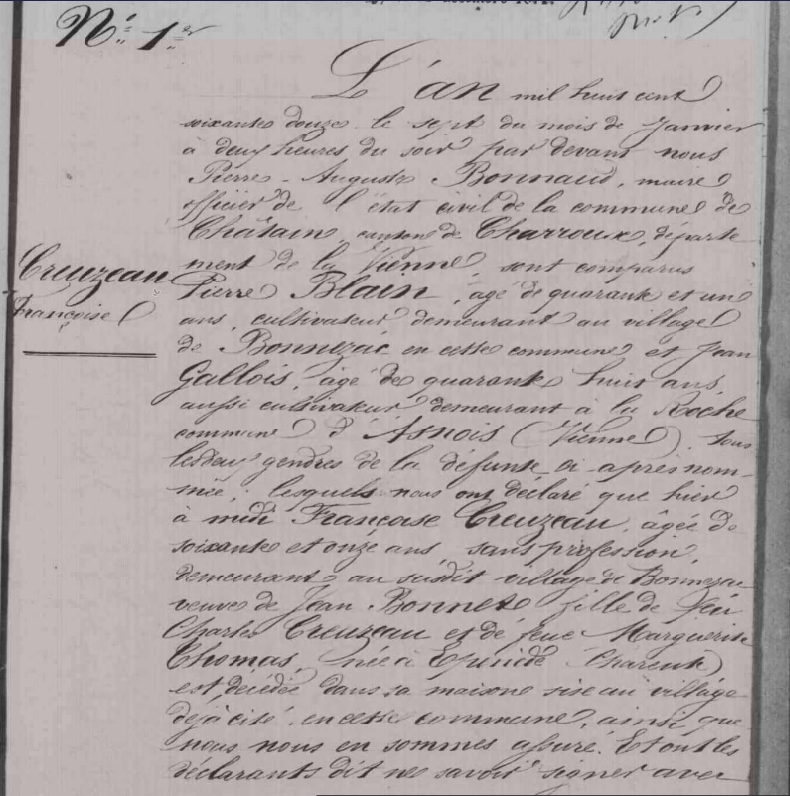 N° 1er
L'an mil huit cent
soixante douze le sept du mois de Janvier
à deux heures du soir par devant nous
Pierre-Auguste Bonnaud, maire
officier de l'état civil de la commune de
Châtain, canton de Charroux, départe
ment de la Vienne, sont comparus
Creuzeau
Françoise
Pierre Blain, âgé de quarante et un
ans, cultivateur demeurant au village
de Bonnezac en cette commune et Jean
Gallois, âgé de quarante huit ans,
aussi cultivateur demeurant à la Roche
commune d'Asnois (Vienne), tous
les deux gendres de la défunte ci-après nom-
mée; lesquels nous ont déclaré que hier
à midi Françoise Creuzeau, âgée de
soixante et onze ans, sans profession,
demeurant au susdit village de Bonnezac
veuve de Jean Bonnet, fille de feu
Charles Creuzeau et de feue Marguerite
Thomas, née à Charente
est décédée dans sa maison sise au village
déjà cité, en cette commune, ainsi que
nous nous en sommes assuré. Et ont les
déclarants dit ne savoir signer avec